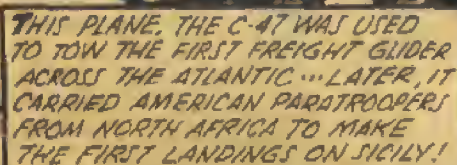 THIS PLANE, THE C-47 WAS USED
TO TOW THE FIRST FREIGHT GLIDER
ACROSS THE ATLANTIC ... LATER, IT
CARRIED AMERICAN PARATROOPERS
FROM NORTH AFRICA TO MAKE
THE FIRST LANDINGS ON SICILY!